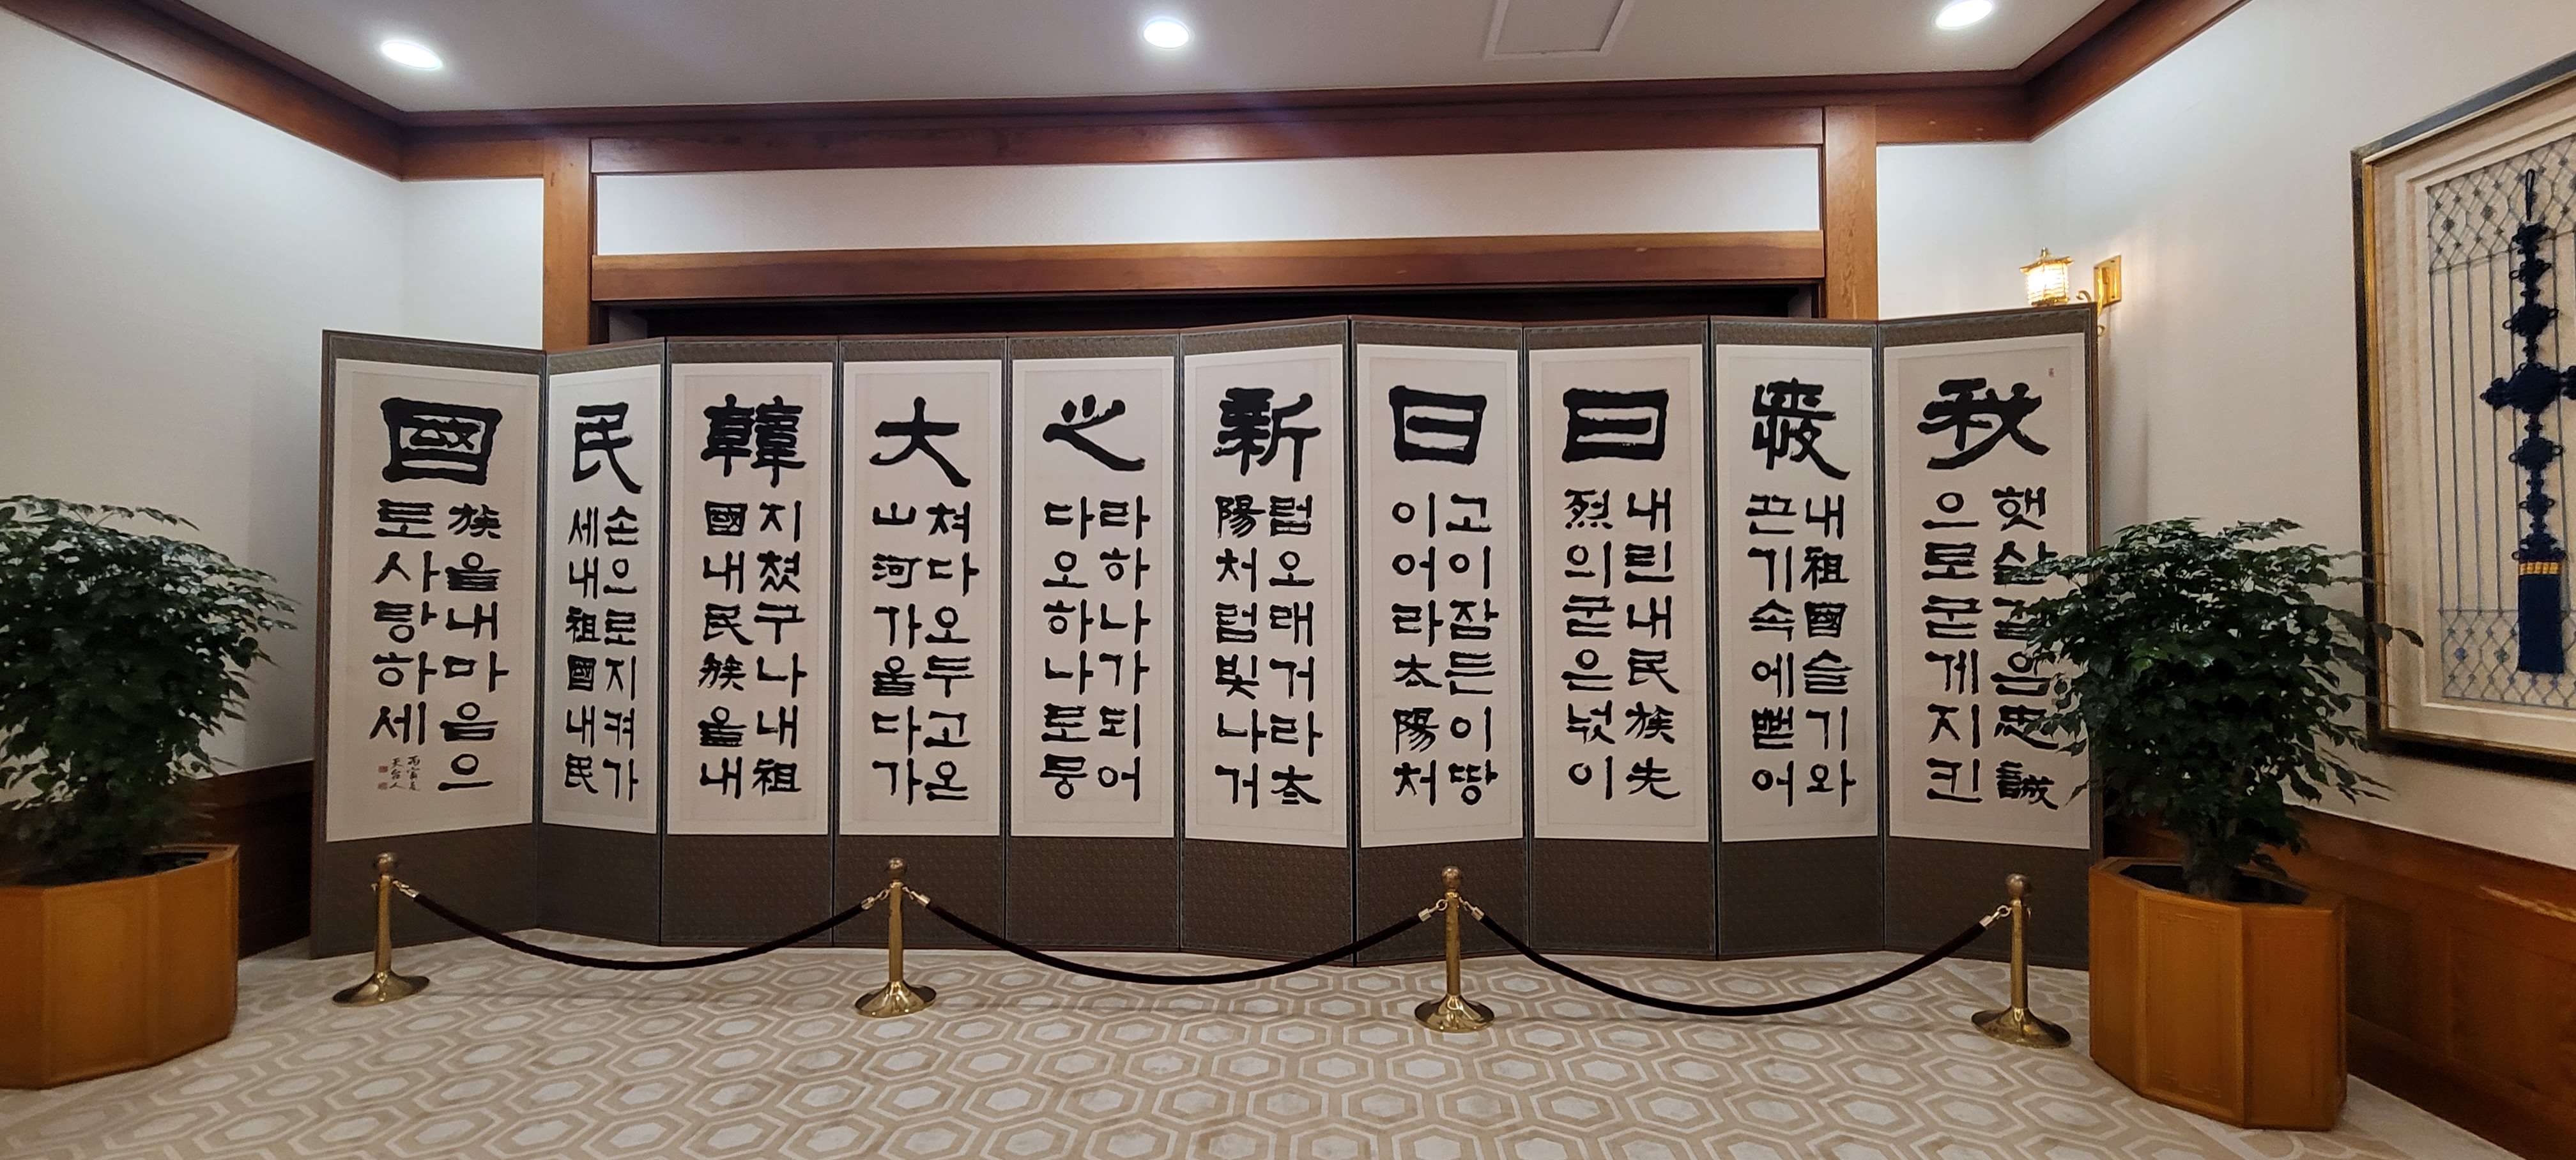 我愛日日新之大韓民國
햇살같은忠誠
으로굳게지킨
내祖國슬기와
끈기속에뻗어
내린내民族先
烈의굳은넋이
고이잠든이땅
이어라太陽처
럼오래거라太
陽처럼빛나거
라하나가되어
다오하나로뭉
쳐다오두고온
山河가울다가
지쳤구나내祖
國내民族을내
손으로지켜가
세내祖國내民
族을내마음으
로사랑하세